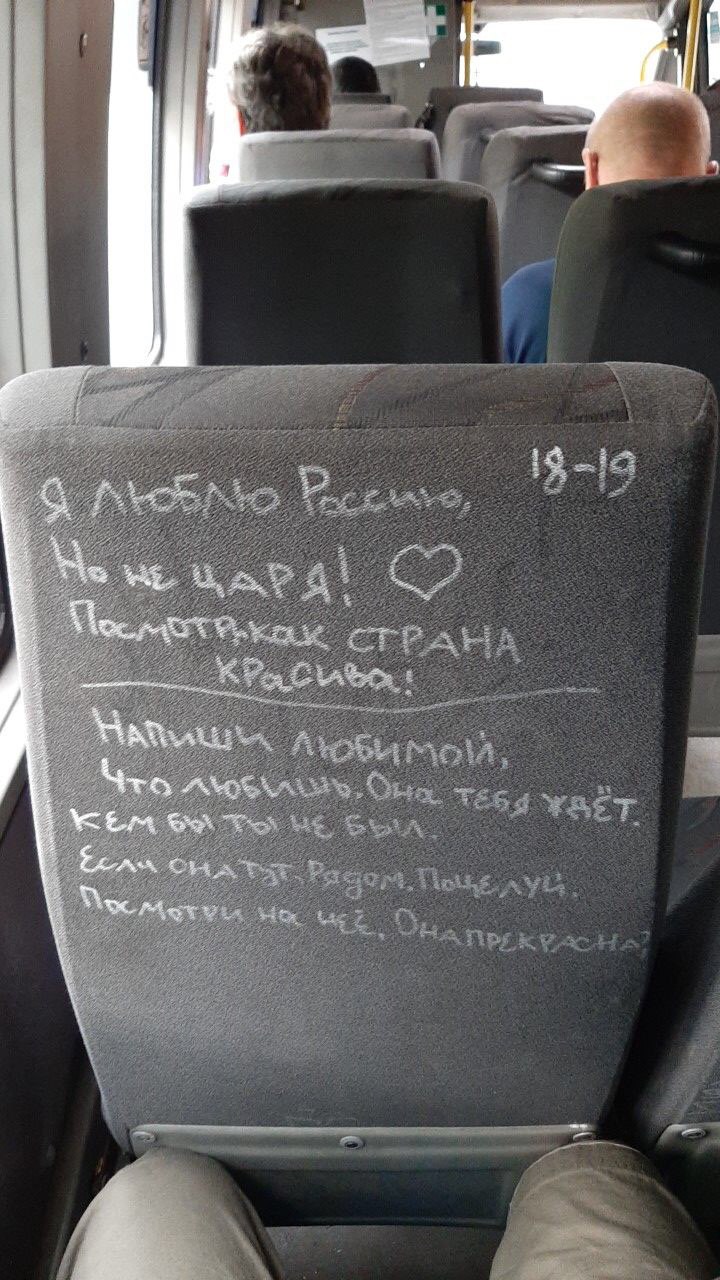 18-19
Я люблю Россию,
Но не ЦАРЯ!
Посмотри, как СТРАНА
красива!
Напиши любимой,
Что любишь. Она тебя ждёт.
Кем бы ты не был.
Если она тут, Рядом, Поцелуй.
Посмотри на неё, Она прекрасна?